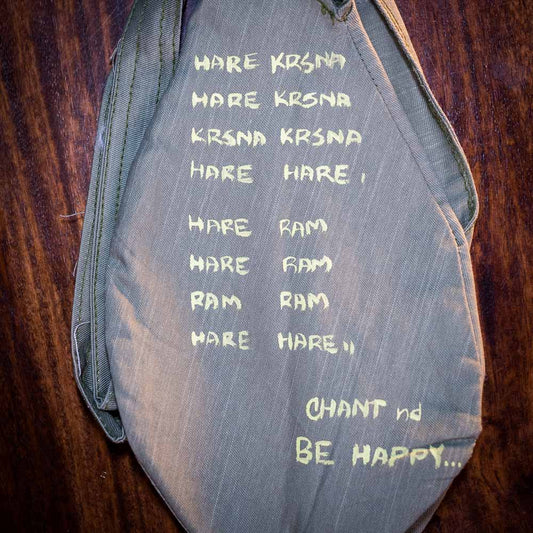 HARE KRSNA
HARE KRSNA
KRSNA KRSNA
HARE HARE,
HARE RAM
HARE RAM
RAM RAM
HARE HARE,,
CHANT nd
BE HAPPY...